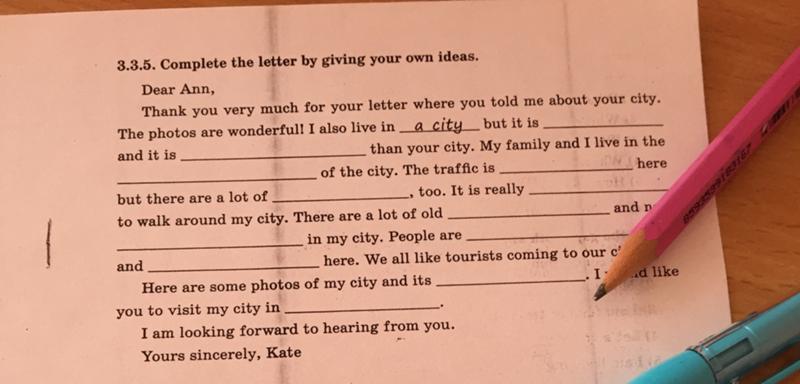 3.3.5. Complete the letter by giving your own ideas.
Dear Ann,
Thank you very much for your letter where you told me about your city.
The photos are wonderful! I also live in a city but it is ____________
and it is ____________ than your city. My family and I live in the
____________ of the city. The traffic is ____________ here
but there are a lot of ____________, too. It is really ____________
to walk around my city. There are a lot of old ____________ and
____________ in my city. People are ____________
and ____________ here. We all like tourists coming to our
Here are some photos of my city and its ____________. I like
you to visit my city in ____________.
I am looking forward to hearing from you.
Yours sincerely, Kate